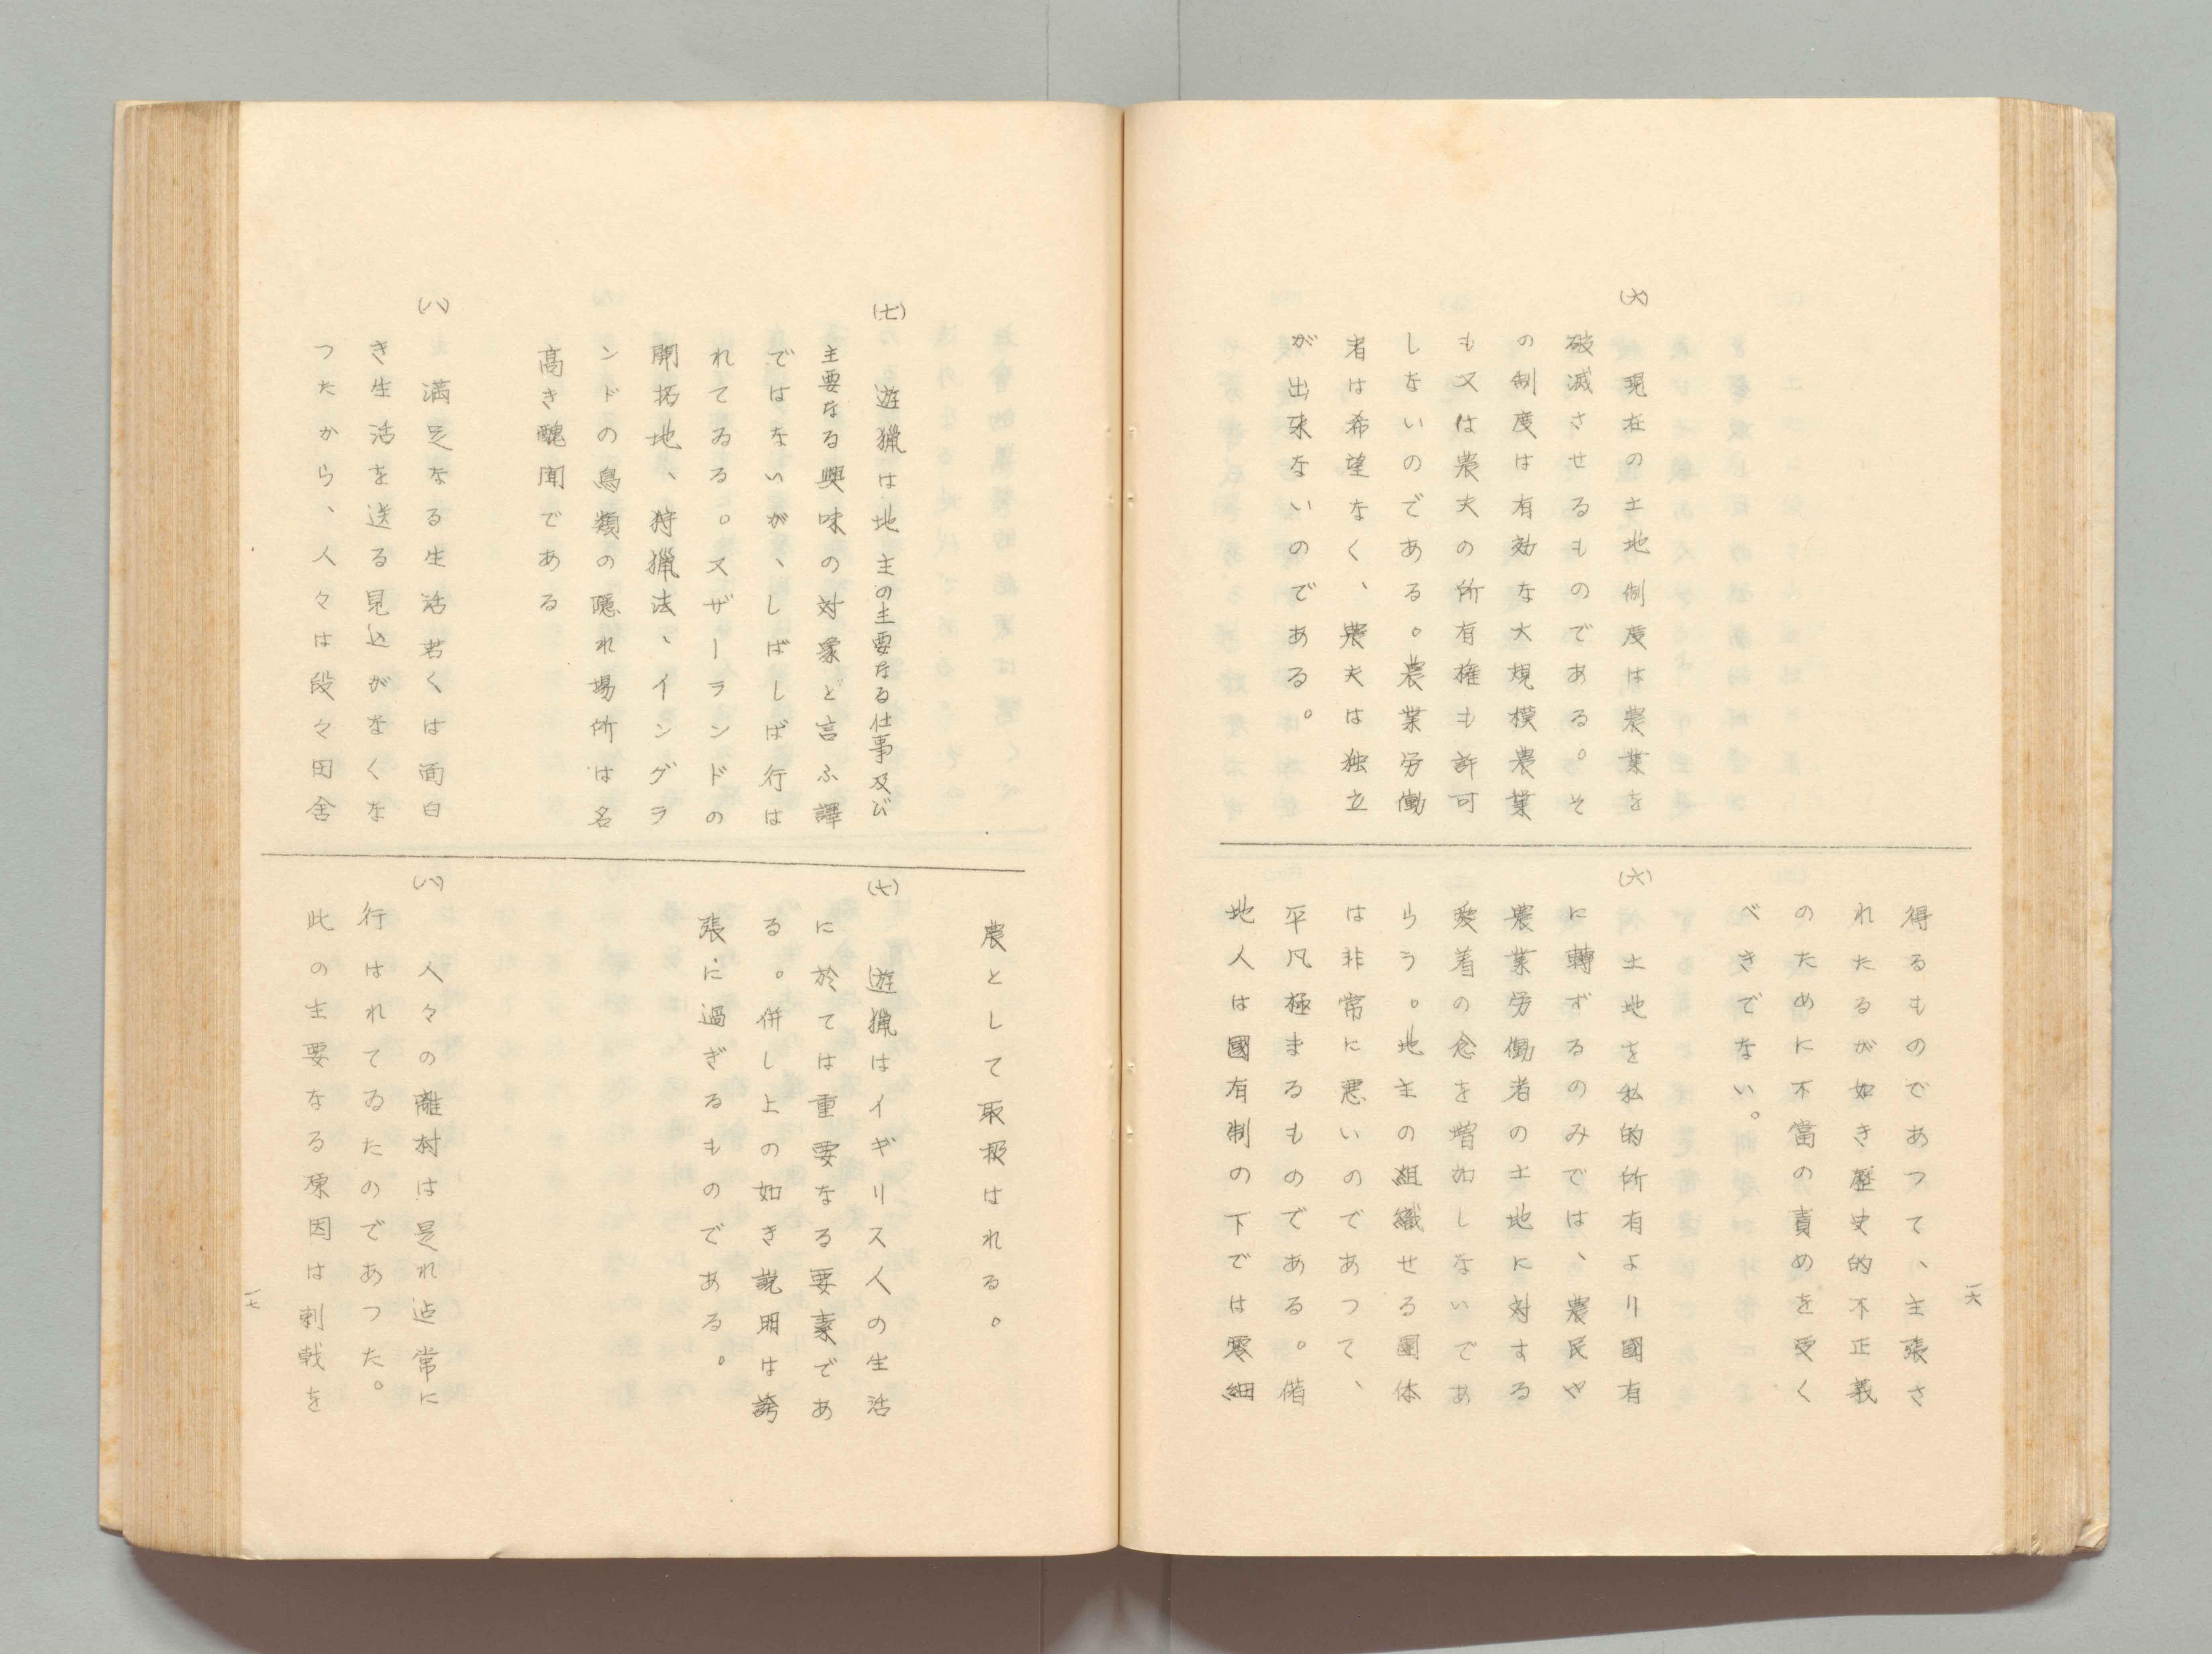 (六)　現在の土地制度は農業を
破滅させるものである。そ
の制度は有効な大規模農業
も又は農夫の所有権も許可
しないのである。農業労働
者は希望なく、農夫は独立
が出来ないのである。
得るものであつて、主張さ
れたるが如き歴史的不正義
のために不當の責めを受く
べきでない。
(六)　土地を私的所有より國有
に轉ずるのみでは、農民や
農業労働者の土地に対する
愛着の念を増加しないであ
らう。地主の組織せる團体
は非常に悪いのであつて、
平凡極まるものである。借
地人は國有制の下では零細
一六
(七)　遊猟は地主の主要なる仕事及び
主要なる興味の対象と言ふ譯
ではないが、しばしば行は
れてゐる。又ザーランドの
開拓地、狩猟法、イングラ
ンドの鳥類の隠れ場所は名
高き醜聞である
(八)　満足なる生活若くは面白
き生活を送る見込がなくな
つたから、人々は段々田舎
農として取扱はれる。
(七)　遊猟はイギリス人の生活
に於ては重要なる要素であ
る。併し上の如き説明は誇
張に過ぎるものである。
(八)　人々の離村は是れ迄常に
行はれてゐたのであつた。
此の主要なる原因は刺戟を
一七